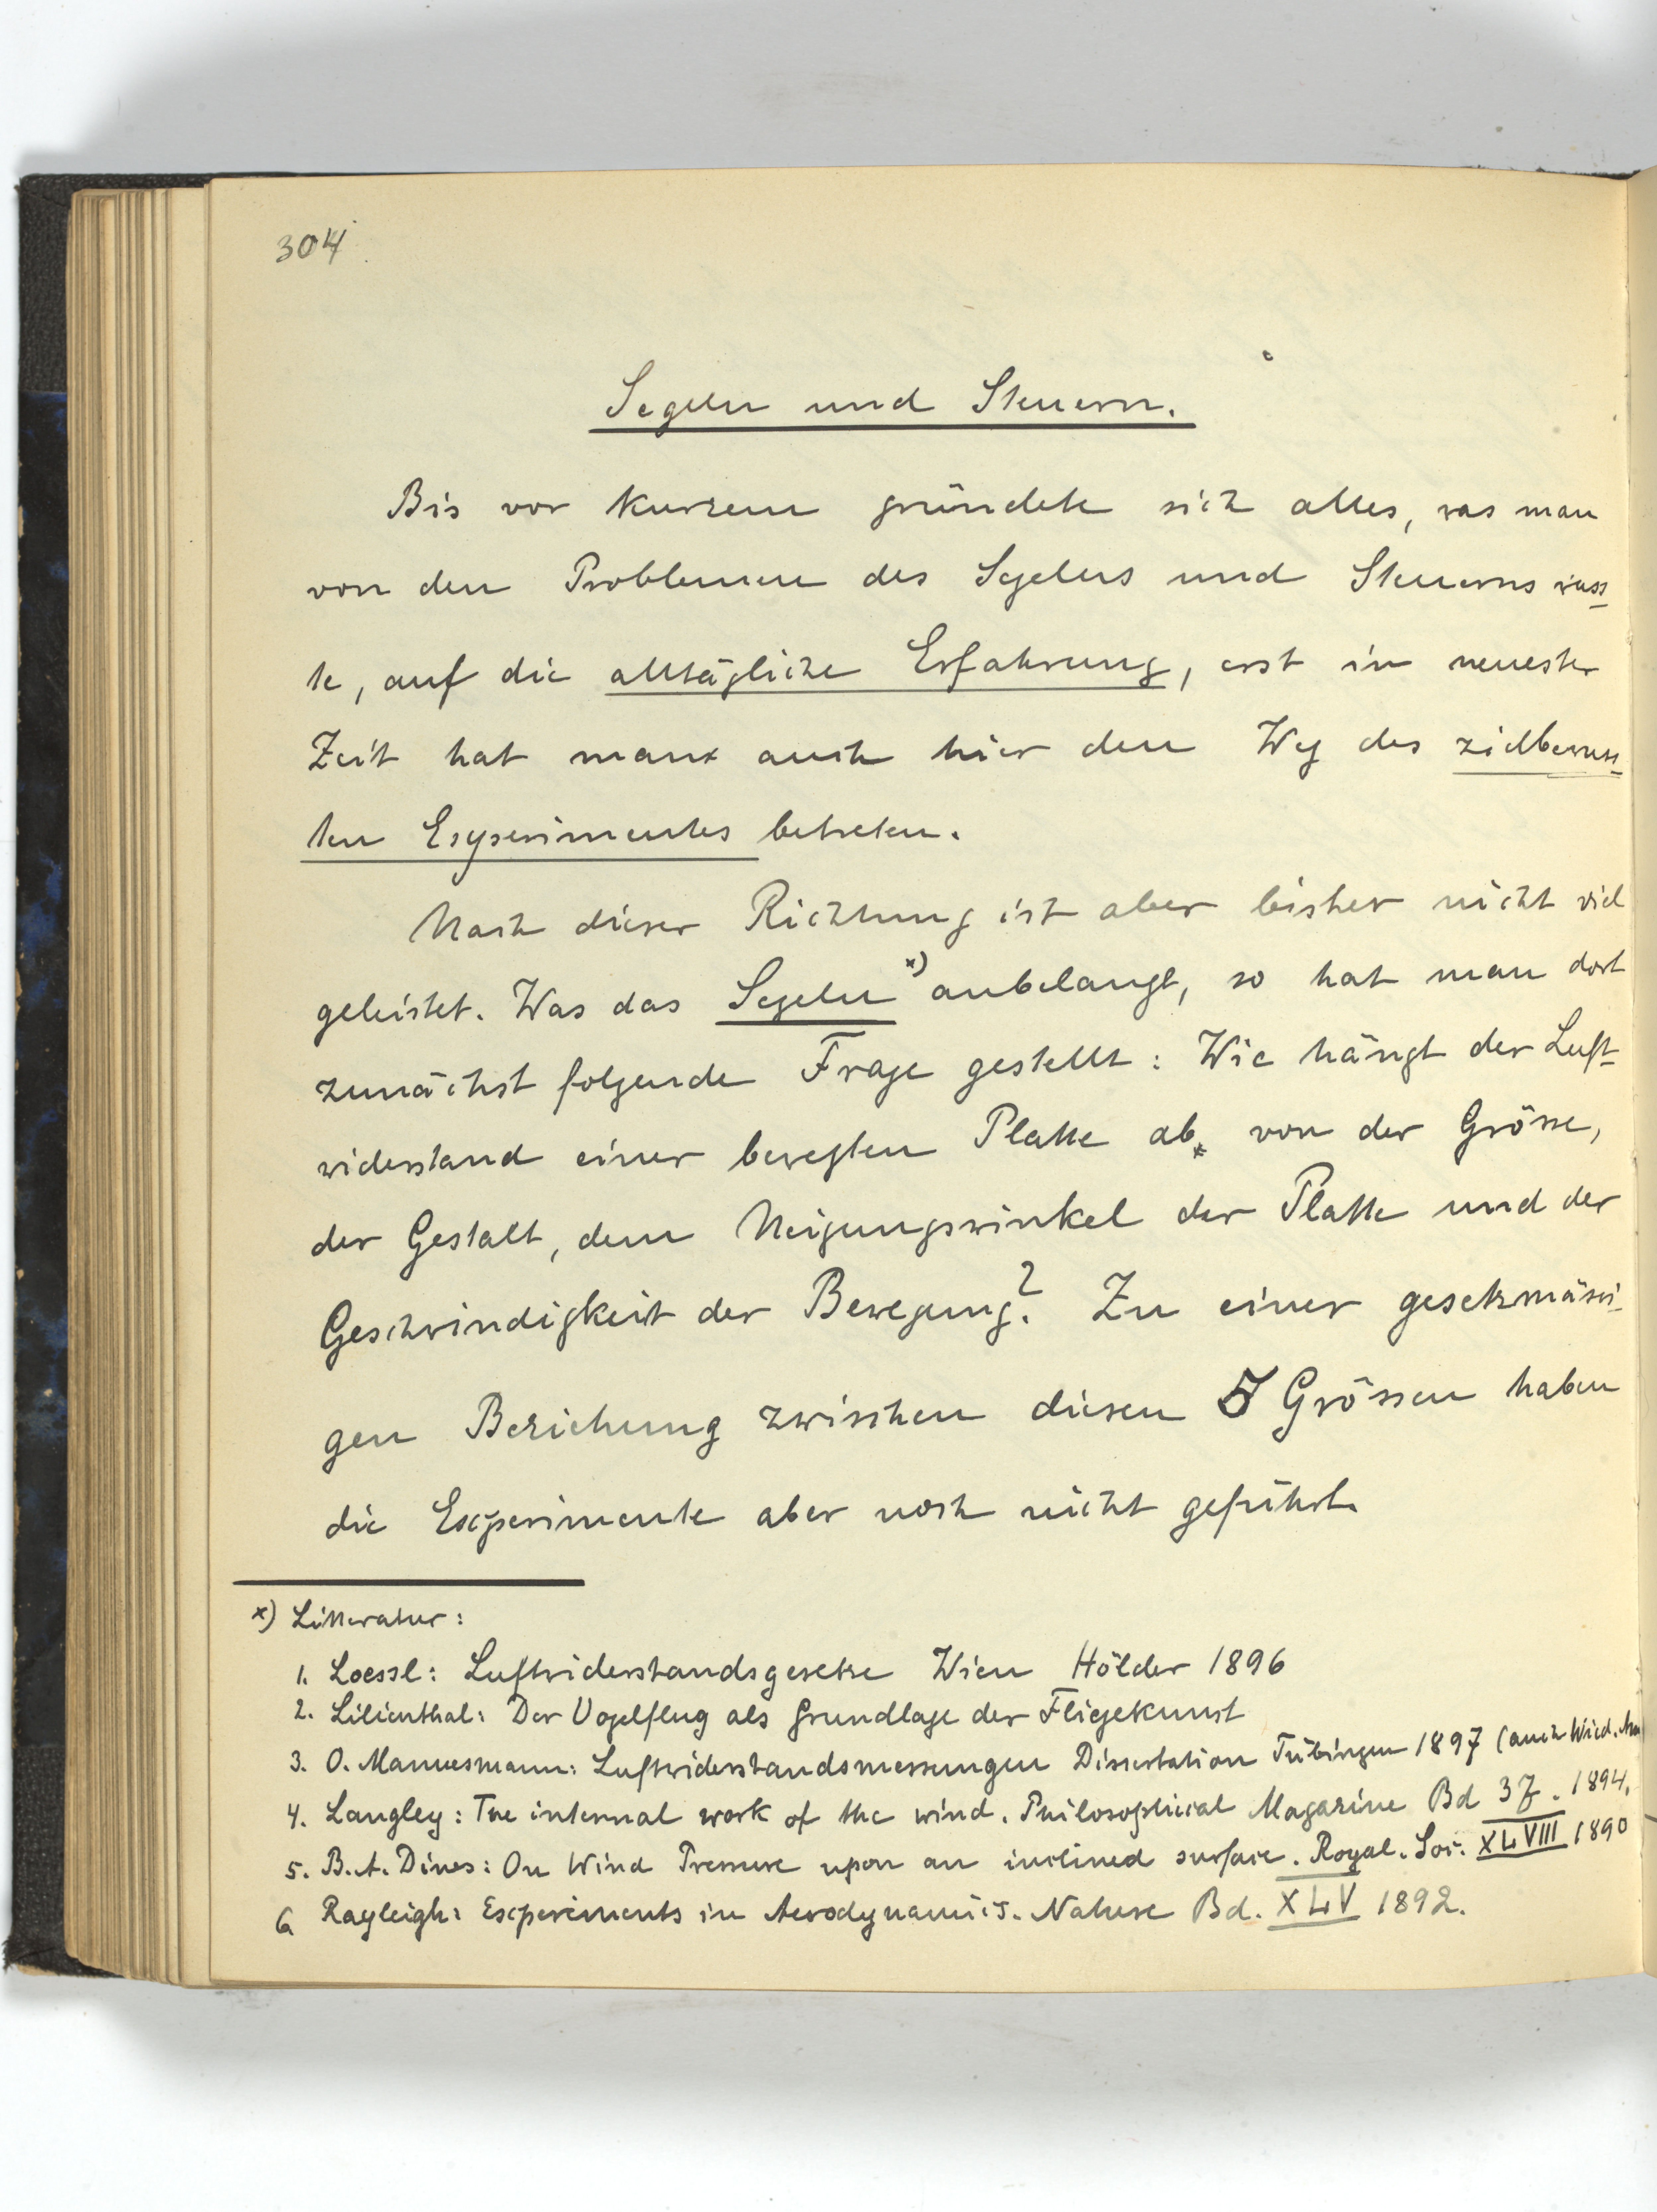 304.
Segeln und Steuern.
Bis vor Kurzem gründete sich alles, was man
von den Problemen des Segelns und Steuerns wuss-
te, auf die alltägliche Erfahrung, erst in neuester
Zeit hat man auch hier den Weg des zielbewuss-
ten Experimentes betreten.
Nach dieser Richtung ist aber bisher nicht viel
geleistet. Was das Segeln x) anbelangt, so hat man dort
zunächst folgende Frage gestellt: Wie hängt der Luft-
widerstand einer bewegten Platte ab von der Grösse,
der Gestalt, dem Neigungswinkel der Platte und der
Geschwindigkeit der Bewegung? Zu einer gesetzmässi-
gen Beziehung zwischen diesen 5 Grössen haben
die Experimente aber noch nicht geführt.
x) Litteratur:
1. Loessl: Luftwiderstandsgesetze Wien Hölder 1896
2. Lilienthal: Der Vogelflug als Grundlage der Fliegekunst
3. O. Mannesmann: Luftwiderstandsmessungen Dissertation Tübingen 1897 (auch Wied. Ann
4. Langley: The internal work of the wind. Philosophical Magazine Bd 37. 1894.
5. B. A. Dines: On Wind Pressure upon an inclined surface. Royal. Soc. XLVIII 1890
6 Rayleigh: Experiments in Aerodynamics. Nature Bd. XLV 1892.